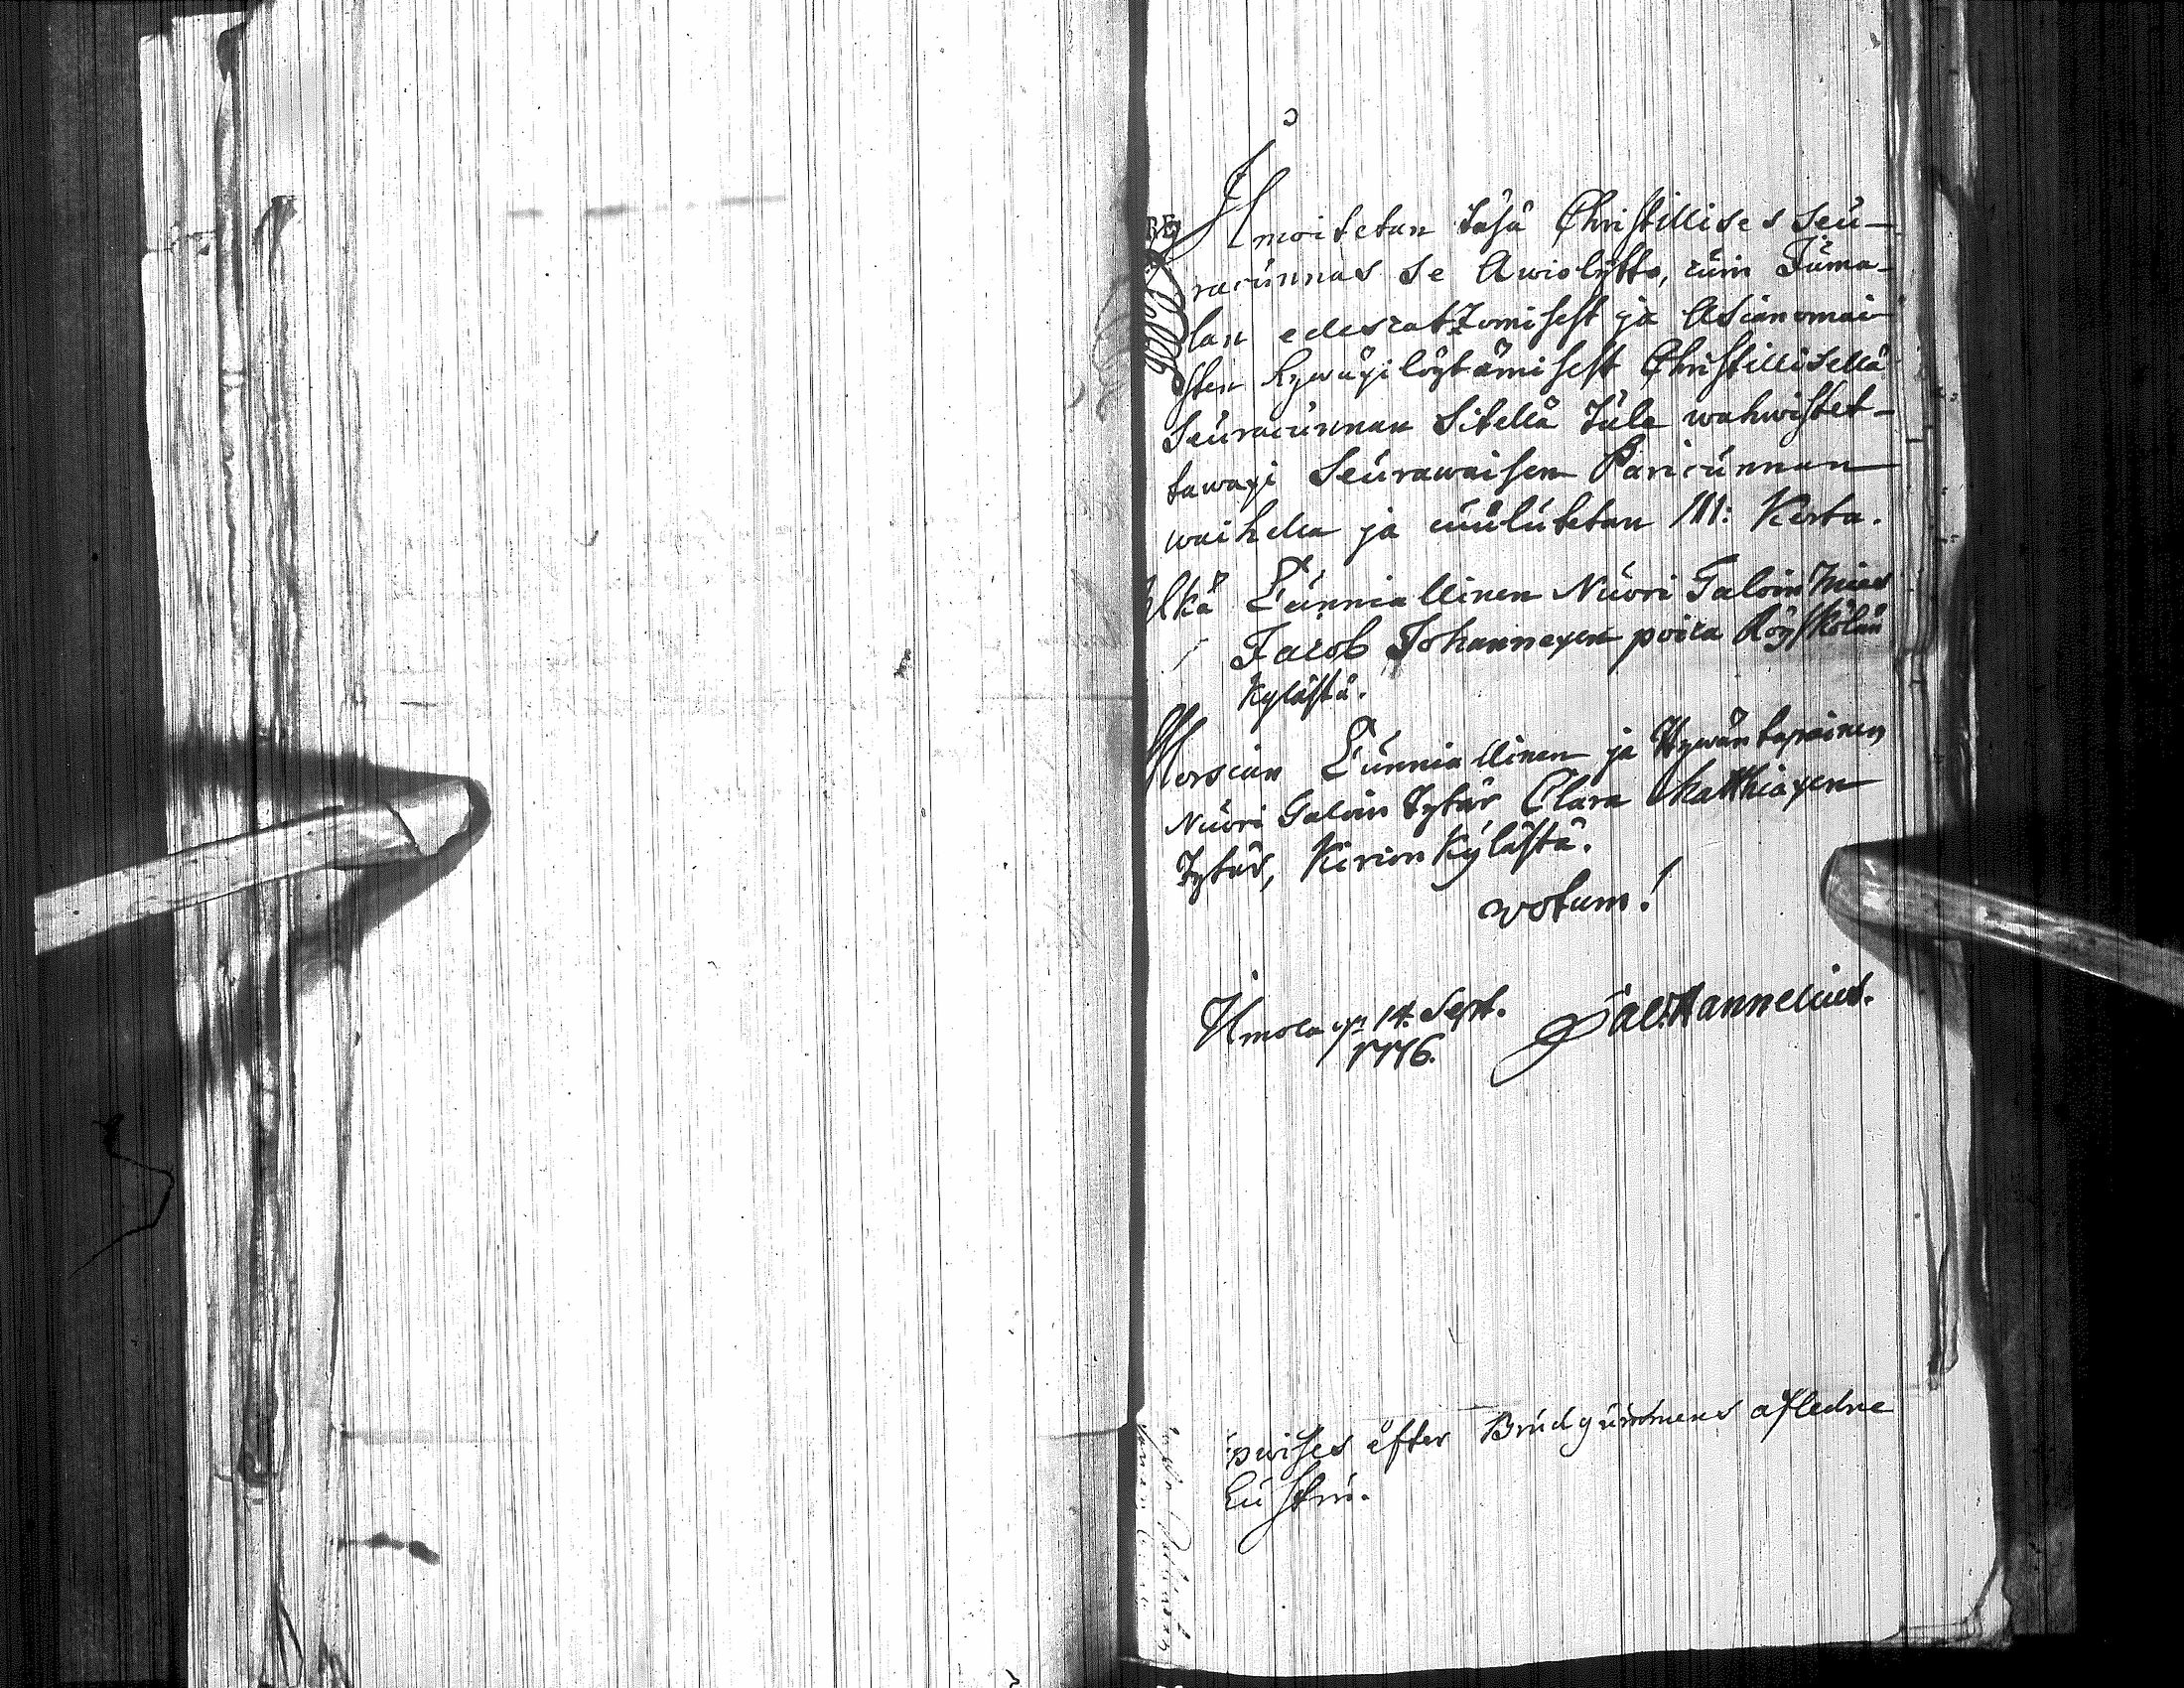 Ilmoitetan täsä Christillises Seu-
racunnas se Awiolijtto, cuin Juma-
lan edescatzomisest ja Asianomai-
sten hywäxilöytämisest Christillisellä
Seuracunnan Sitellä Tule wahwistet-
tawaxi Seurawaisen Paricunnan
waihella ja cuulutetan III: Kerta.
Ylkä Cunniallinen Nuori Taloin Mies
Jacob Johannexen poica Röyskölän
Kylästä.
Morsian Cunniallinen ja Hywäntapainen
Nuori Taloin Tytär Clara Matthiaxen
Tytär, Kirion Kylästä.
votum!
Urmola 14. Sept.
1776.
Jac. Hannelius.
upwises efter Brudgummens afledne
hustru.